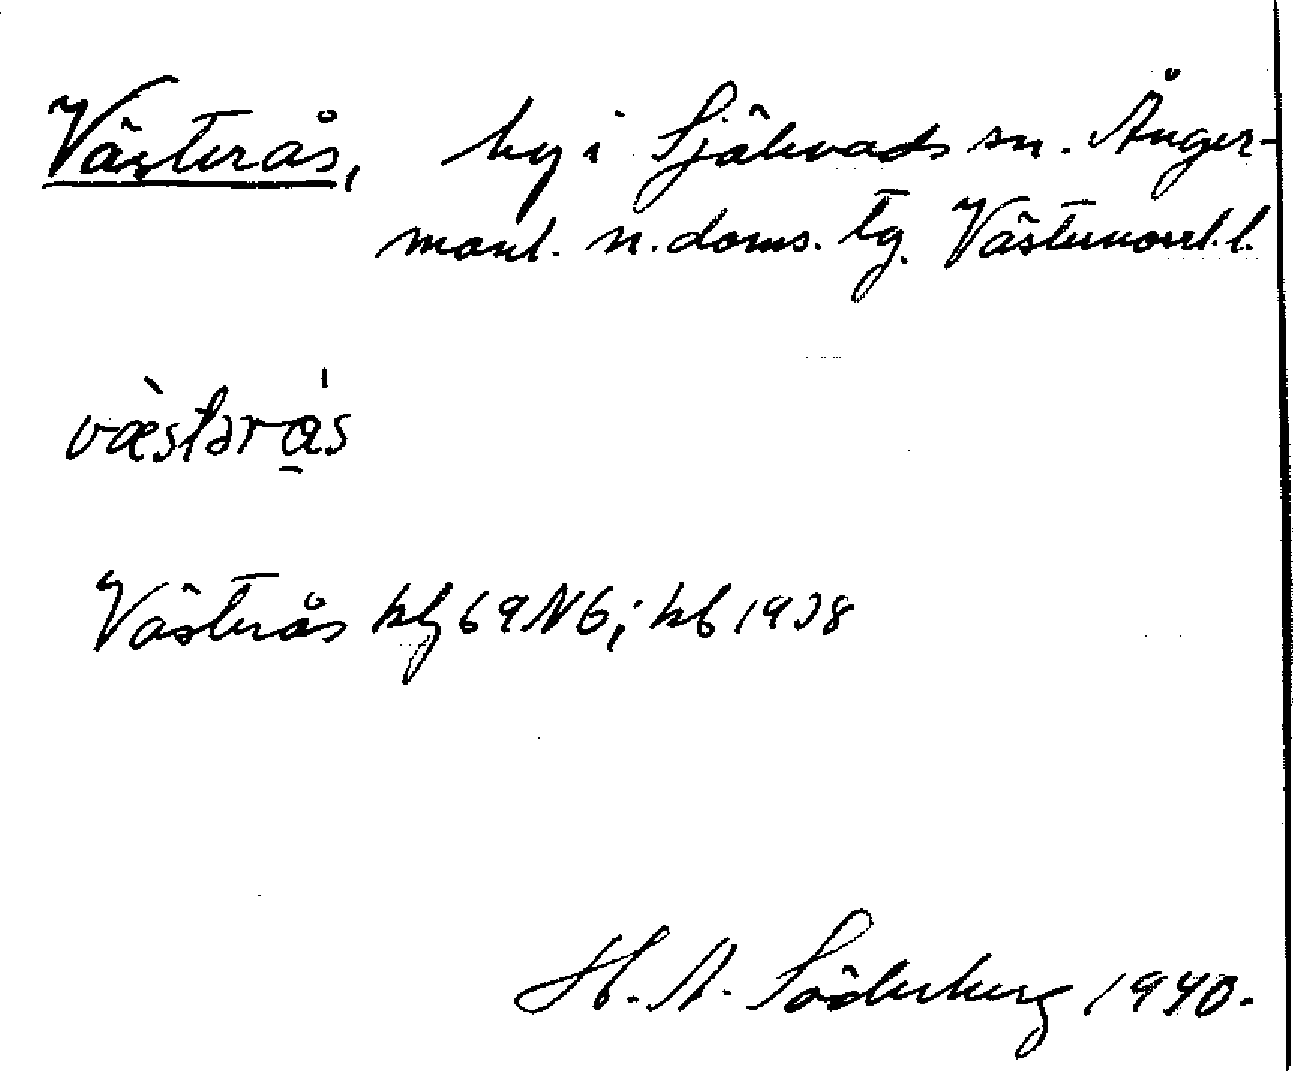 Västerås, by i Själevads sn. Ånger-
manl. n. doms. tg. Västernorrl. l.
væ̀stəra̲̍s
Västerås kbl 69 N6; kb 1938
H. A. Söderberg 1940.